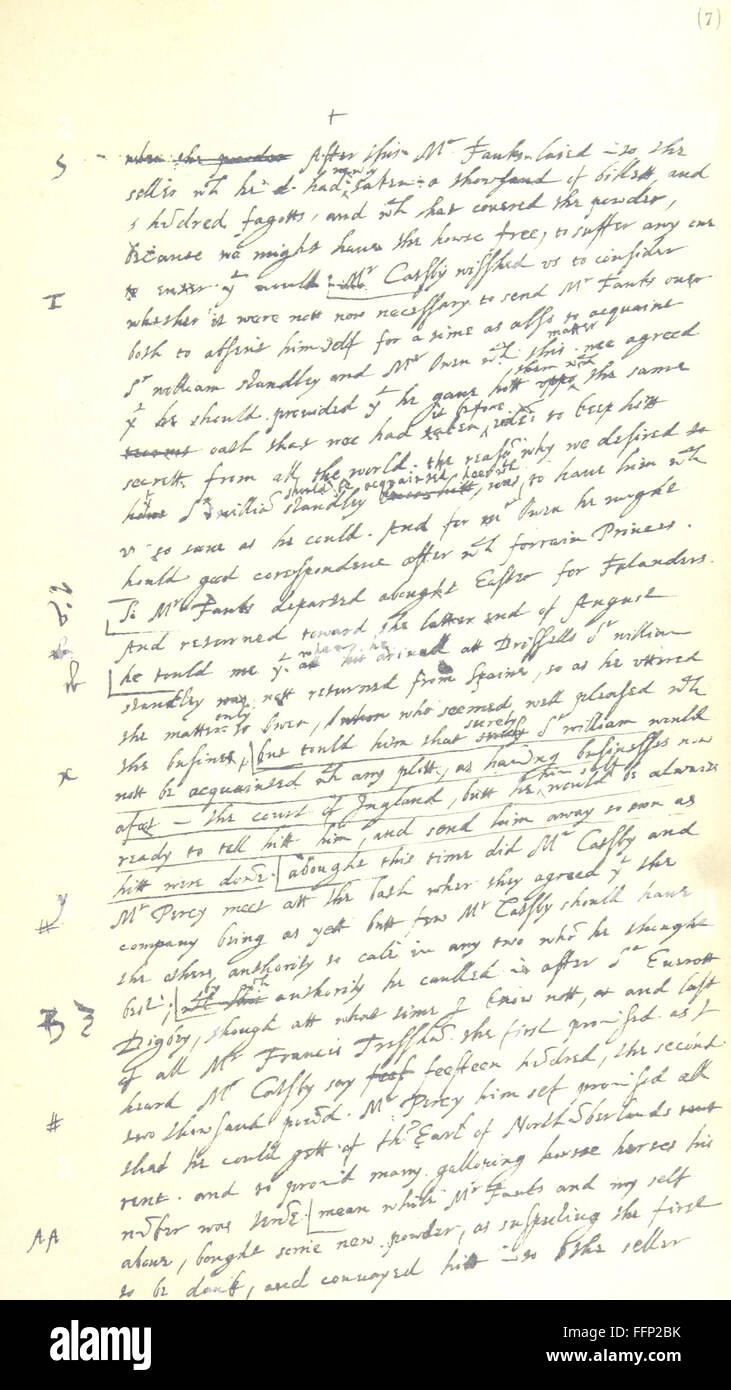 (7)
+
S - when the powder After this Mr Fauks laied in to the
seller wch he had newly taken a thousand of billett, and
5 hūdred fagotts, and wth that covered the powder,
because we might have the house free, to suffer any one
to enter yt would
I Mr Catsby wisshed us to consider
whether it were nott now necessary to send Mr Fauks over
both to absent him self for a time as also to acquaint
Sr william Standley and Mr Owen wth this matter. wee agreed
yt he should. provided yt he gave hitt them wth the same
oath that wee had taken before, to keep hitt
secrett from all the world. the reasō why we desired to
have Sr williā Standley should be acquainted heerwth was, to have him wth
us so sune as he could. And for mr Owen he might
hould good correspondence after wth forrain Princes.
So Mr Fauks departed abought Easter for Flanders
And retorned toward the latter end of August
he tould me yt when he arived att Brissells Sr william
Standley was nott returned from Spaine, so as he uttered
the matter only to Owen, who seemed well pleased wth
the busines, but tould him that surely Sr william would
x nott be acquainted wth any plott, as having businesses now
afoot in the court of Ingland, butt he him self would be alwais
ready to tell hitt him, and send him away so son as
hitt were donne. abought this time did Mr Catsby and
Mr Percy meet att the bath wher they agreed yt the
# company being as yett butt few Mr Catsby should have
the others authority to call in any two whō he thought
best, by wch authority he caulled in after Sr Everott
B Digby, though att what time I know nott, and last
of all Mr Francis Tresshā. the first promised as I
heard Mr Catsby say feefteen hūdred, the second
# two thousand pownd. Mr Percy him self promised all
that he could gett of the Earl of Northūberlands rent
rent. and to provid many galloping horses his
nūber was tenne. mean while Mr Fauks and my self
AA alone, bought some new powder, as suspecting the first
to be dank, and convayed hitt in to the seller
alamy
a
Image ID: FFP2BK
www.alamy.com